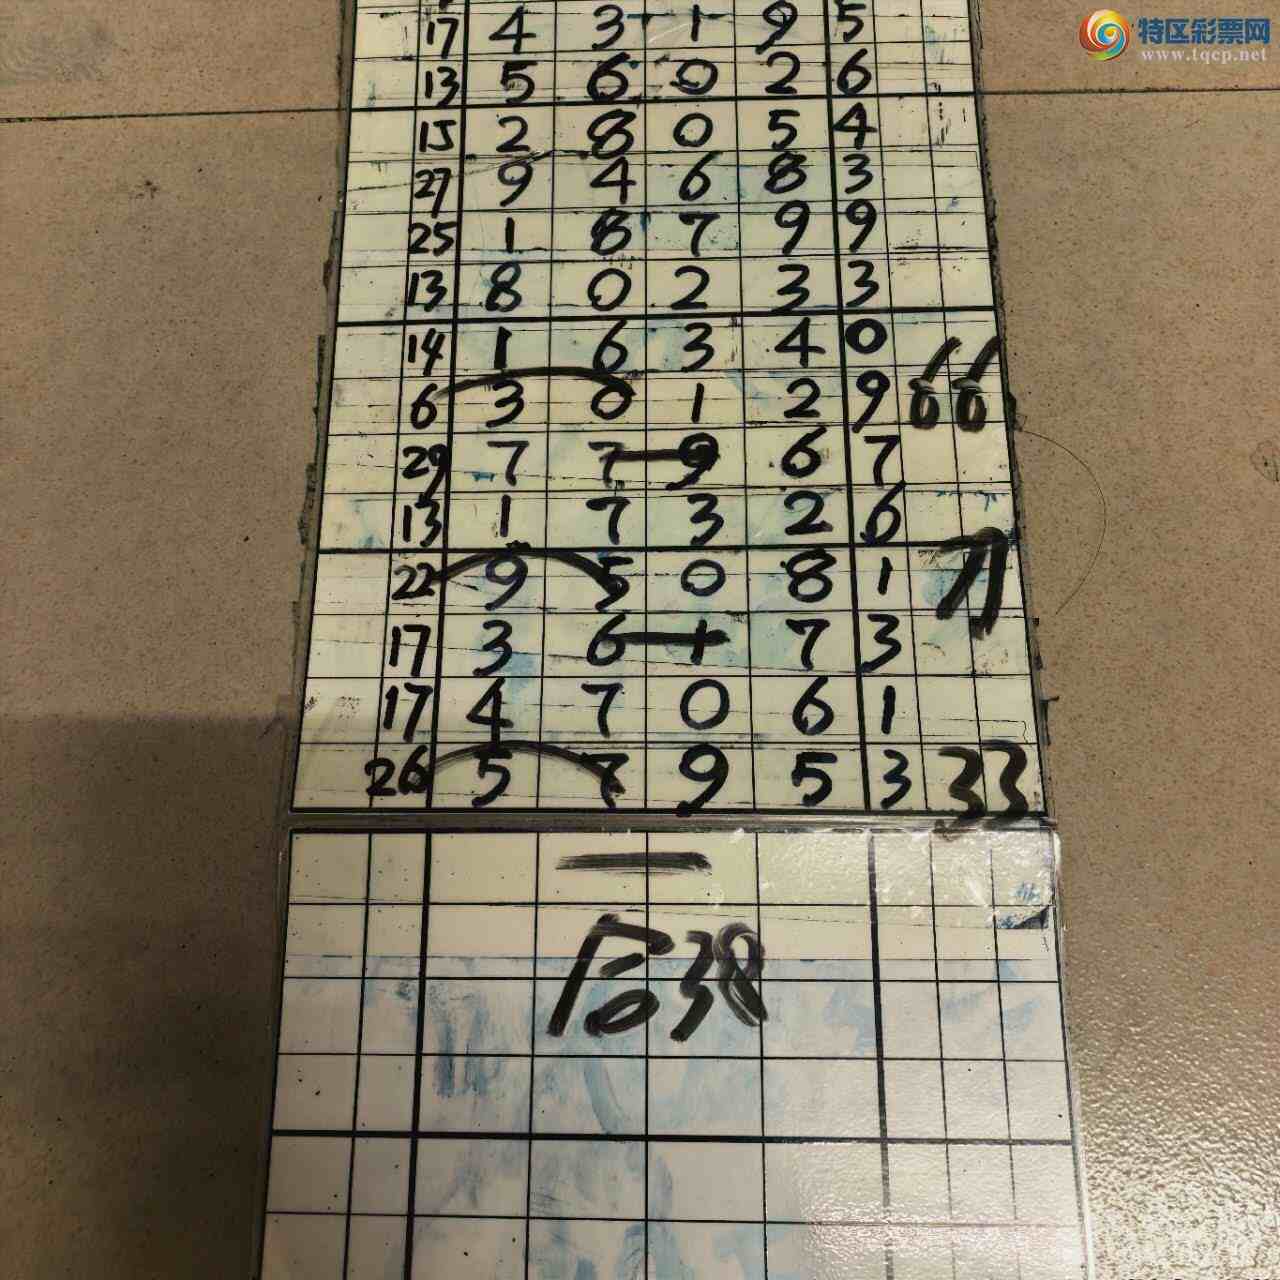 特区彩票网
www.tqcp.net
17 4 3 1 9 5
13 5 6 0 2 6
15 2 8 0 5 4
27 9 4 6 8 3
25 1 8 7 9 9
13 8 0 2 3 3
14 1 6 3 4 0
6 3 0 1 2 9 66
29 7 7 9 6 7
13 1 7 3 2 6
22 9 5 0 8 1 77
17 3 6 1 7 3
17 4 7 0 6 1
26 5 7 9 5 3 33
一
后38